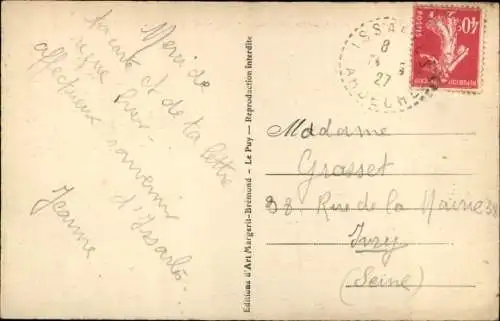 Merci de
ta carte et de ta lettre
reçue hier
affectueux souvenir
d'Issarlès.
Jeanne
Editions d'Art Margerit-Brémond - Le Puy - Reproduction Interdite
ISSA
8
27
ARDECHE
40c
POSTES
Madame
Grasset
38 Rue de la Mairie 38
Ivry
(Seine)